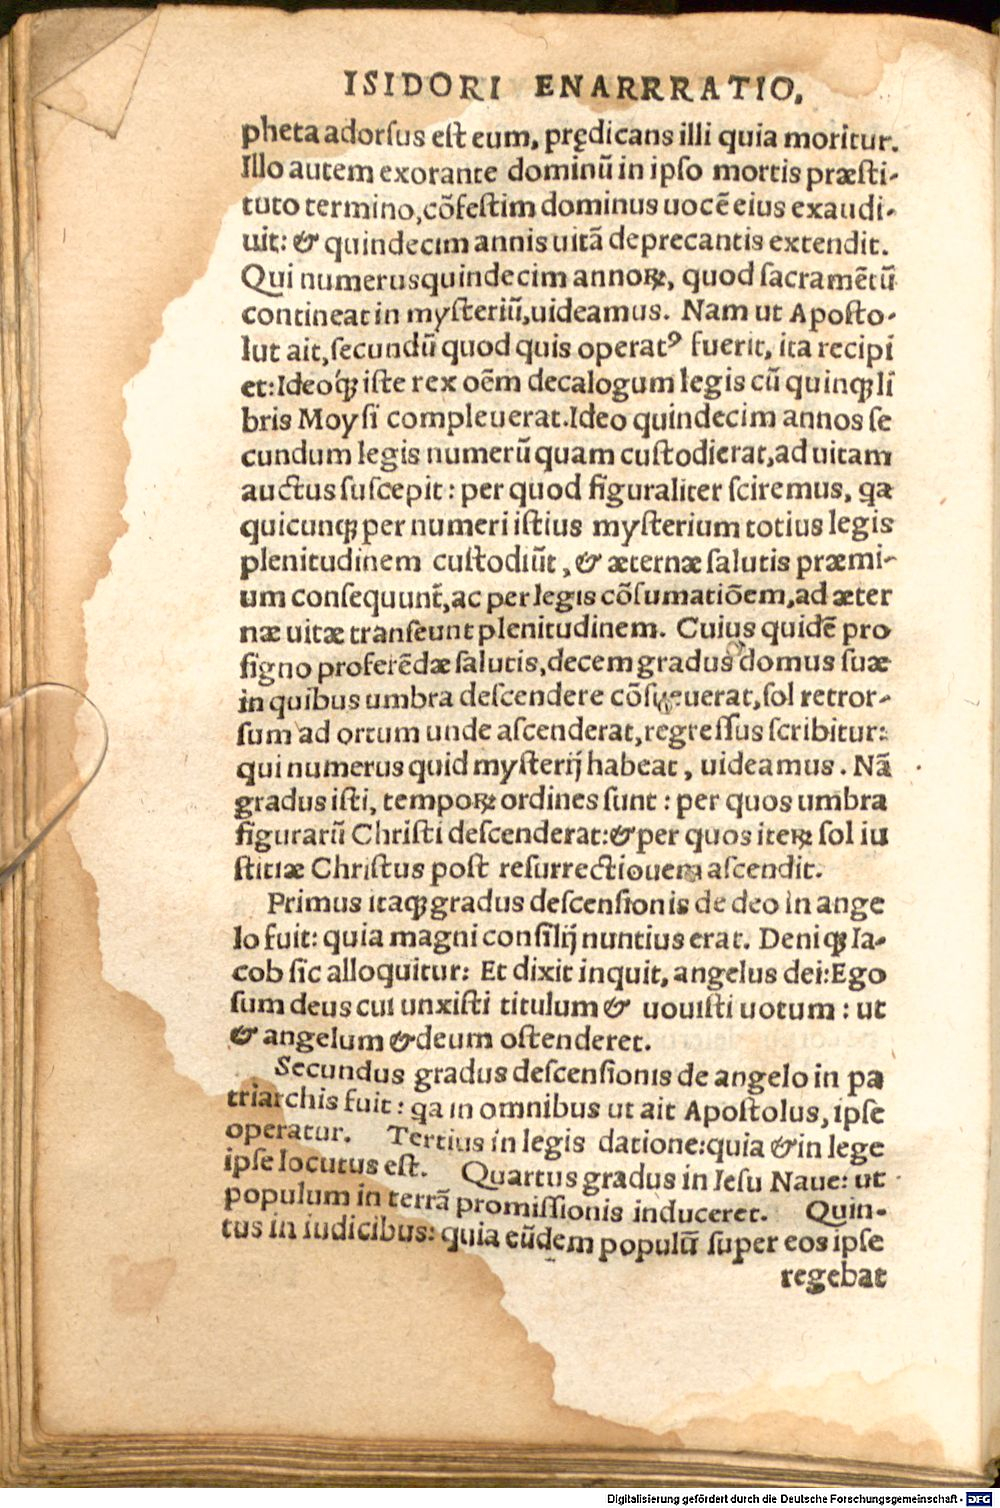 ISIDORI ENARRRATIO,
pheta adorsus est eum, prędicans illi quia moritur.
Illo autem exorante dominū in ipso mortis præsti-
tuto termino, cōfestim dominus uocē eius exaudi-
uit: & quindecim annis uitā deprecantis extendit.
Qui numerus quindecim annoꝝ, quod sacramētū
contineat in mysteriū, uideamus. Nam ut Aposto-
lut ait, secundū quod quis operatꝰ fuerit, ita recipi
et: Ideoq́ꝫ iste rex oēm decalogum legis cū quinqꝫ li
bris Moysi compleuerat. Ideo quindecim annos se
cundum legis numerū quam custodierat, ad uitam
auctus suscepit: per quod figuraliter sciremus, qa
quicunqꝫ per numeri istius mysterium totius legis
plenitudinem custodiūt, & æternæ salutis præmi-
um consequunt̃, ac per legis cōsumatiōem, ad æter
næ uitæ transeunt plenitudinem. Cuius quidē pro
signo proferēdæ salutis, decem gradus domus suæ
in quibus umbra descendere cōsueuerat, sol retror-
sum ad ortum unde ascenderat, regressus scribitur:
qui numerus quid mysterij habeat, uideamus. Nā
gradus isti, tempoꝝ ordines sunt: per quos umbra
figurarū Christi descenderat: & per quos iteꝝ sol iu
stitiæ Christus post resurrectiouem ascendit.
Primus itaqꝫ gradus descensionis de deo in ange
lo fuit: quia magni consilij nuntius erat. Deniqꝫ Ia-
cob sic alloquitur: Et dixit inquit, angelus dei: Ego
sum deus cui unxisti titulum & uouisti uotum: ut
& angelum & deum ostenderet.
Secundus gradus descensionis de angelo in pa
triarchis fuit: qa in omnibus ut ait Apostolus, ipse
operatur. Tertius in legis datione: quia & in lege
ipse locutus est. Quartus gradus in Iesu Naue: ut
populum in terrā promissionis induceret. Quin-
tus in iudicibus: quia eūdem populū super eos ipse
regebat
Digitalisierung gefördert durch die Deutsche Forschungsgemeinschaft - DFG